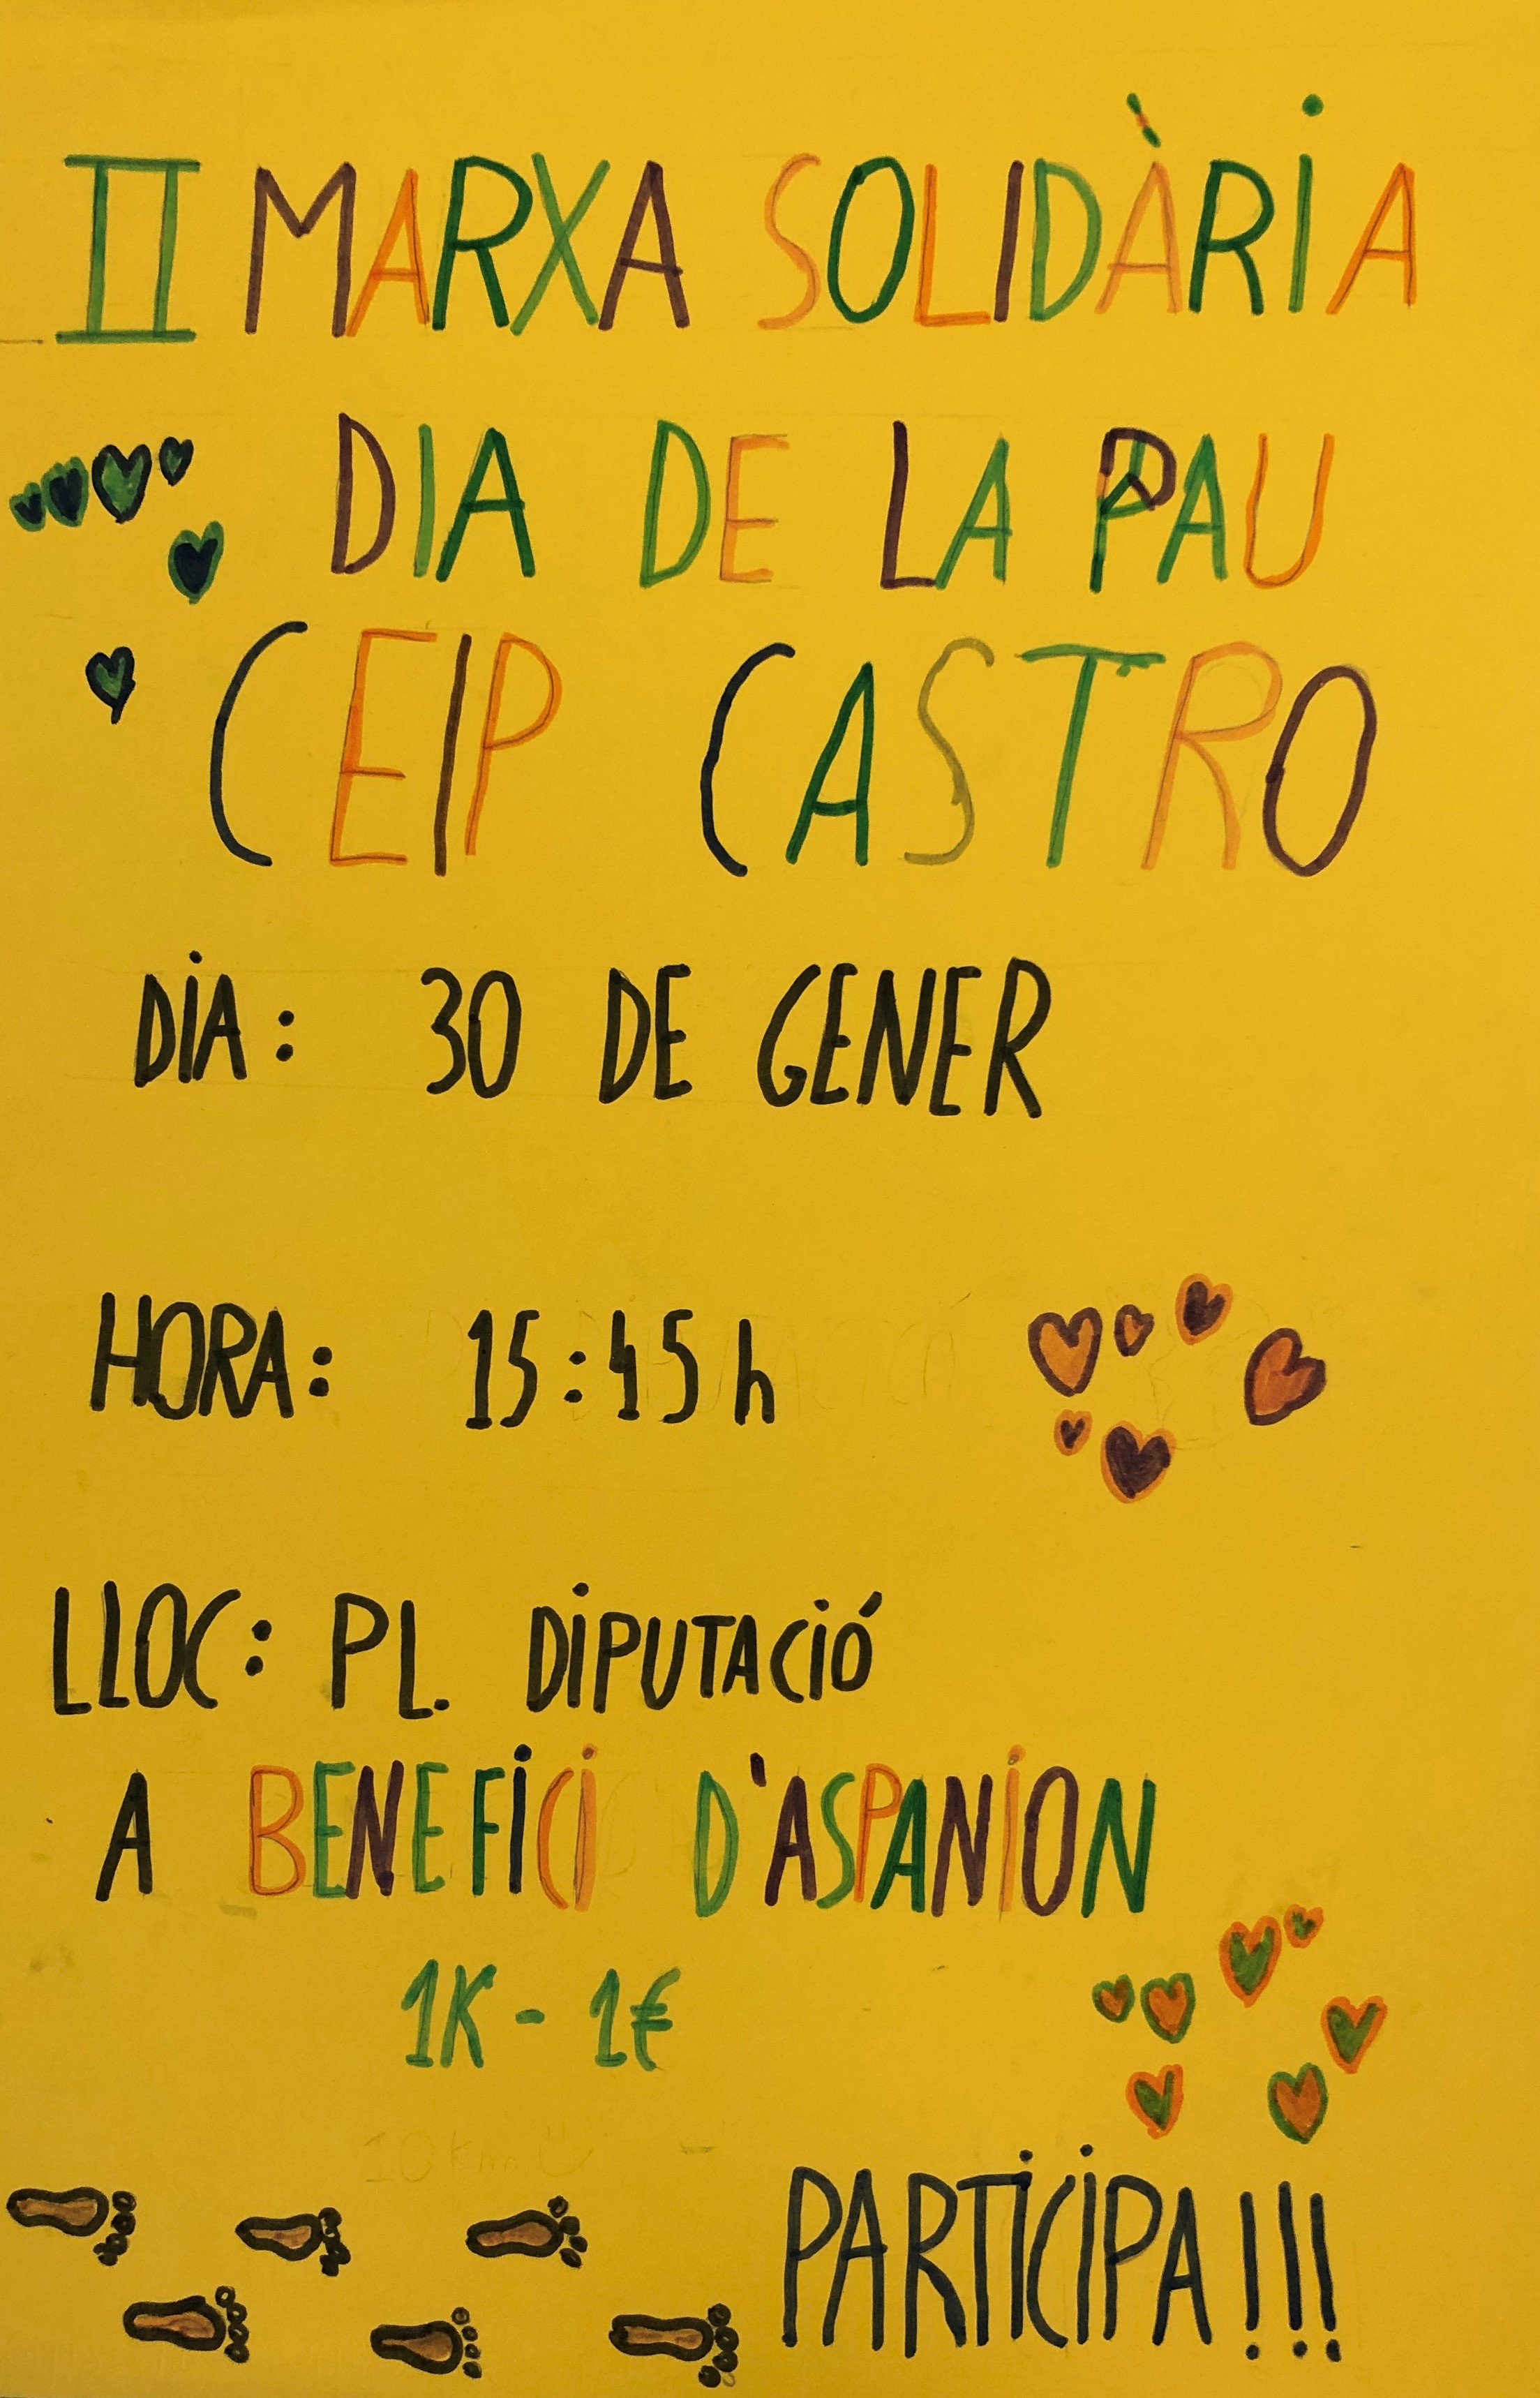 II MARXA SOLIDÀRIA
DIA DE LA PAU
CEIP CASTRO
DIA: 30 DE GENER
HORA: 15:45 h
LLOC: PL. DIPUTACIÓ
A BENEFICI D'ASPANION
1K - 1€
10 km
PARTICIPA!!!